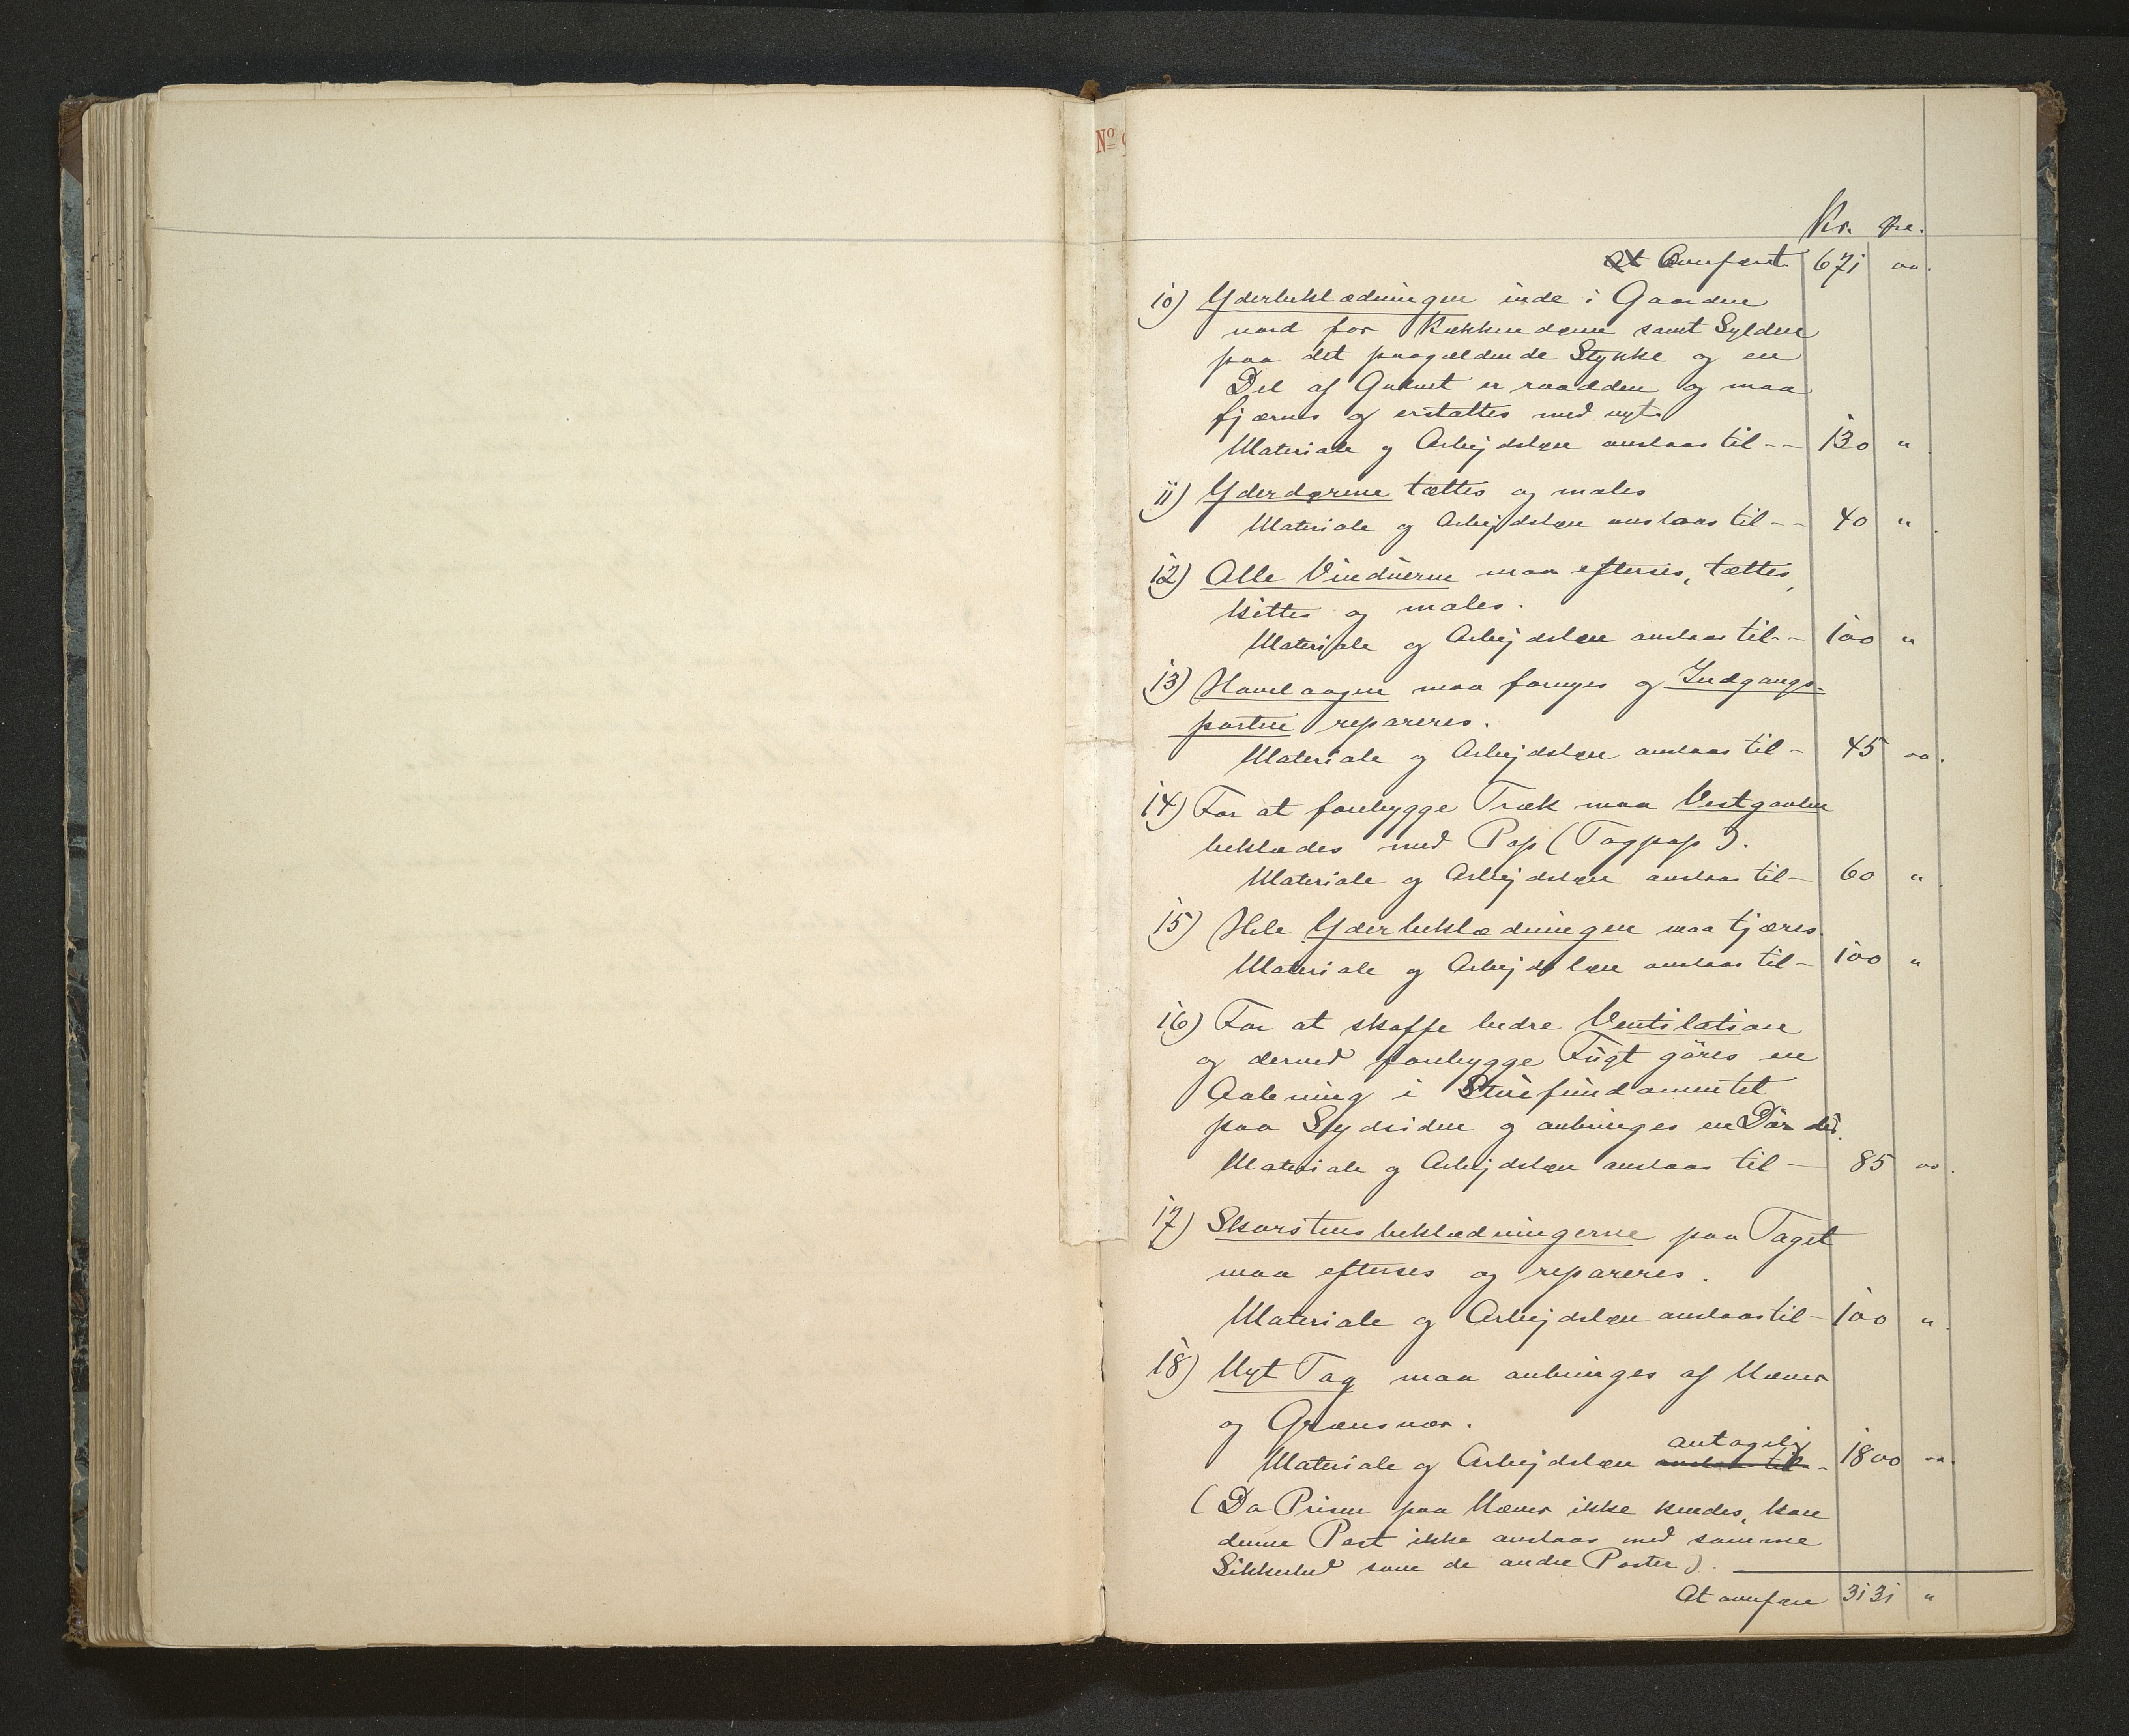 No
Kr. Øre.
At Overført 671 00.
10) Yderbeklædningen inde i Gaarden
nord for Køkkendøren samt Sylden
paa det paagældende Stykke og en
Del af Gulvet er raadden og maa
fjærnes og erstattes med nyt.
Materiale og Arbejdsløn anslaas til -- 130 "
11) Yderdørene tættes og males
Materiale og Arbejdsløn anslaas til -- 40 "
12) Alle Vinduerne maa efterses, tættes,
kittes og males.
Materiale og Arbejdsløn anslaas til -- 100 "
13) Havelaagen maa fornyes og Indgangs=
porten repareres.
Materiale og Arbejdsløn anslaas til - 45 00.
14) For at forebygge Træk maa Vestgavlen
beklædes med Pap (Tagpap).
Materiale og Arbejdsløn anslaas til - 60 "
15) Hele Yderbeklædningen maa tjæres.
Materiale og Arbejdsløn anslaas til - 100 "
16) For at skaffe bedre Ventilation
og derved forebygge Fugt göres en
Aabning i Stuefundamentet
paa Sydsiden og anbringes en Dör der.
Materiale og Arbejdsløn anslaas til - 85 00.
17) Skorstensbeklædningerne paa Taget
maa efterses og repareres.
Materiale og Arbejdsløn anslaas til - 100 "
18) Nyt Tag maa anbringes af Næver
og Grønsvær.
antagelig
Materiale og Arbejdsløn anslaas til - 1800 00.
(Da Prisen paa Næver ikke kendes, kan
denne Post ikke anslaas med samme
Sikkerhed som de andre Poster).
At overføre 3131 "